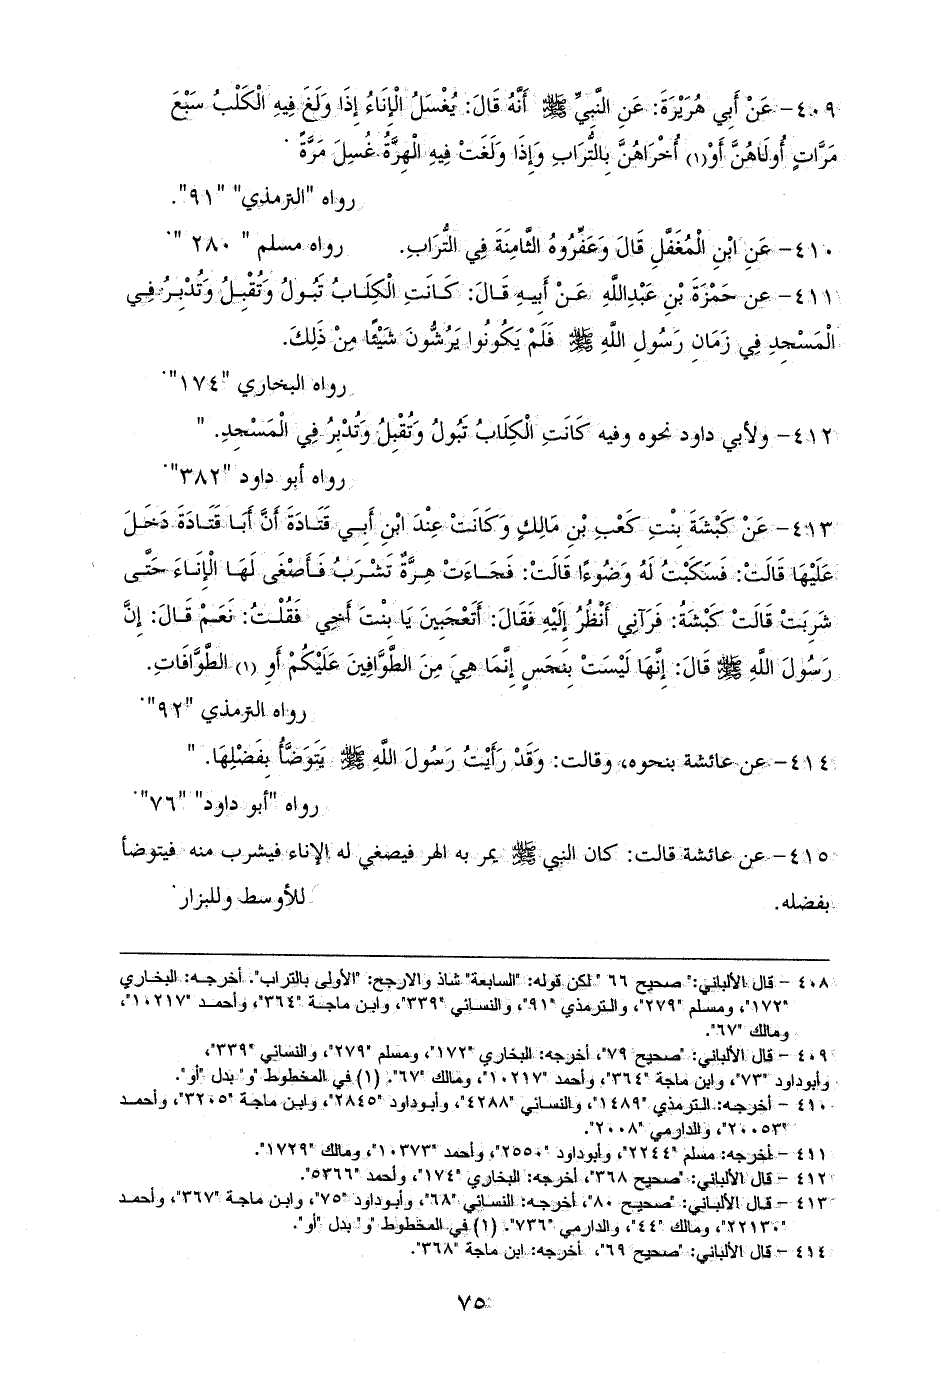 ٤٠٩- عَنْ أَبِي هُرَيْرَةَ: عَنِ النَّبِيِّ ﷺ أَنَّهُ قَالَ: يُغْسَلُ الْإِنَاءُ إِذَا وَلَغَ فِيهِ الْكَلْبُ سَبْعَ
مَرَّاتٍ أُولَاهُنَّ أَوْ(١) أُخْرَاهُنَّ بِالتُّرَابِ وَإِذَا وَلَغَتْ فِيهِ الْهِرَّةُ غُسِلَ مَرَّةً.
رواه "الترمذي" "٩١".
٤١٠- عَنِ ابْنِ الْمُغَفَّلِ قَالَ وَعَفِّرُوهُ الثَّامِنَةَ فِي التُّرَابِ. رواه مسلم "٢٨٠".
٤١١- عن حَمْزَةَ بْنِ عَبْدِاللَّهِ عَنْ أَبِيهِ قَالَ: كَانَتِ الْكِلَابُ تَبُولُ وَتُقْبِلُ وَتُدْبِرُ فِي
الْمَسْجِدِ فِي زَمَانِ رَسُولِ اللَّهِ ﷺ فَلَمْ يَكُونُوا يَرُشُّونَ شَيْئًا مِنْ ذَلِكَ.
رواه البخاري "١٧٤".
٤١٢- ولأبي داود نحوه وفيه كَانَتِ الْكِلَابُ تَبُولُ وَتُقْبِلُ وَتُدْبِرُ فِي الْمَسْجِدِ. "
رواه أبو داود "٣٨٢".
٤١٣- عَنْ كَبْشَةَ بِنْتِ كَعْبِ بْنِ مَالِكٍ وَكَانَتْ عِنْدَ ابْنِ أَبِي قَتَادَةَ أَنَّ أَبَا قَتَادَةَ دَخَلَ
عَلَيْهَا قَالَتْ: فَسَكَبْتُ لَهُ وَضُوءًا قَالَتْ: فَجَاءَتْ هِرَّةٌ تَشْرَبُ فَأَصْغَى لَهَا الْإِنَاءَ حَتَّى
شَرِبَتْ قَالَتْ كَبْشَةُ: فَرَآنِي أَنْظُرُ إِلَيْهِ فَقَالَ: أَتَعْجَبِينَ يَا بِنْتَ أَخِي فَقُلْتُ: نَعَمْ قَالَ: إِنَّ
رَسُولَ اللَّهِ ﷺ قَالَ: إِنَّهَا لَيْسَتْ بِنَجَسٍ إِنَّمَا هِيَ مِنَ الطَّوَّافِينَ عَلَيْكُمْ أَوِ (١) الطَّوَّافَاتِ.
رواه الترمذي "٩٢".
٤١٤- عن عائشة بنحوه، وقالت: وَقَدْ رَأَيْتُ رَسُولَ اللَّهِ ﷺ يَتَوَضَّأُ بِفَضْلِهَا. "
رواه "أبو داود" "٧٦".
٤١٥- عن عائشة قالت: كان النبي ﷺ يمر به الهر فيصغي له الإناء فيشرب منه فيتوضأ
بفضله. للأوسط وللبزار.
٤٠٨ - قال الألباني: "صحيح ٦٦ "لكن قوله: "السابعة" شاذ والارجح: "الأولى بالتراب". أخرجه: البخاري
"١٧٢"، ومسلم "٢٧٩"، والترمذي "٩١"، والنسائي "٣٣٩"، وابن ماجة "٣٦٤"، وأحمد "١٠٢١٧"،
ومالك "٦٧".
٤٠٩ - قال الألباني: "صحيح ٧٩"، أخرجه: البخاري "١٧٢"، ومسلم "٢٧٩"، والنسائي "٣٣٩"،
وأبوداود "٧٣"، وابن ماجة "٣٦٤"، وأحمد "١٠٢١٧"، ومالك "٦٧". (١) في المخطوط "و" بدل "أو".
٤١٠ - أخرجه: الترمذي "١٤٨٩"، والنسائي "٤٢٨٨"، وأبوداود "٢٨٤٥"، وابن ماجة "٣٢٠٥"، وأحمد
"٢٠٠٥٣"، والدارمي "٢٠٠٨".
٤١١ - أخرجه: مسلم "٢٢٤٤"، وأبوداود "٢٥٥٠"، وأحمد "١٠٣٧٣"، ومالك "١٧٢٩".
٤١٢ - قال الألباني: "صحيح ٣٦٨"، أخرجه: البخاري "١٧٤"، وأحمد "٥٣٦٦".
٤١٣ - قال الألباني: "صحيح ٨٠"، أخرجه: النسائي "٦٨"، وأبوداود "٧٥"، وابن ماجة "٣٦٧"، وأحمد
"٢٢١٣٠"، ومالك "٤٤"، والدارمي "٧٣٦". (١) في المخطوط "و" بدل "أو".
٤١٤ - قال الألباني: "صحيح ٦٩"، أخرجه: ابن ماجة "٣٦٨".
٧٥